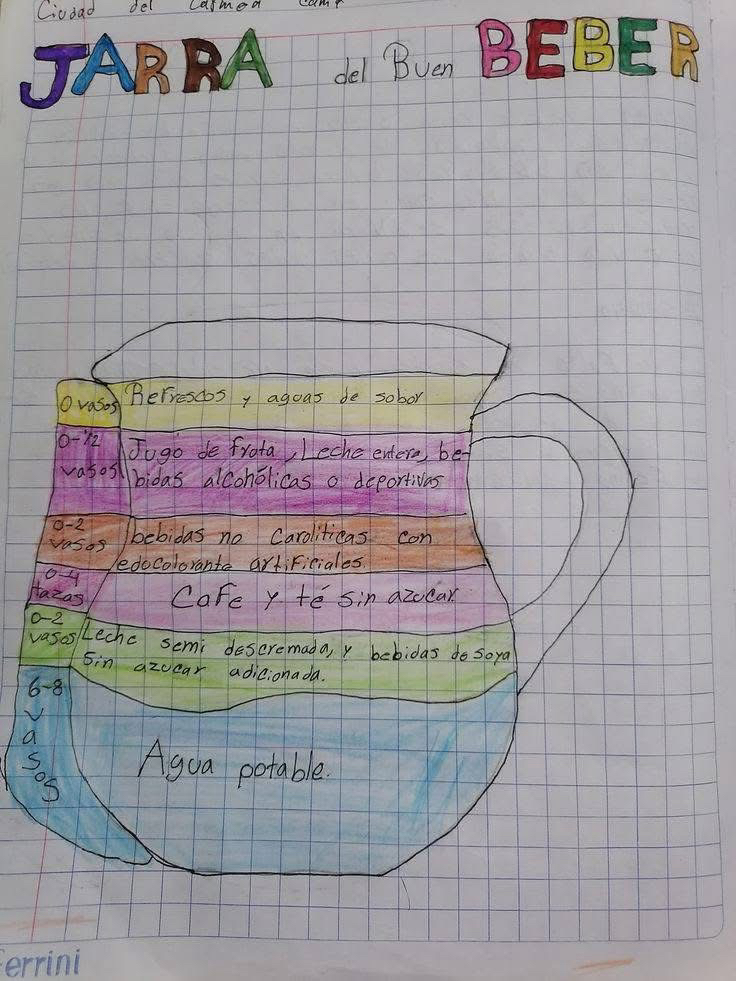 Ciudad del Carmen Camp
JARRA del Buen BEBER
0 vasos Refrescos y aguas de sobor
0-1/2 vasos Jugo de frota, Leche entera, be-
bidas alcohólicas o deportivas
0-2 vasos bebidas no Caroliticas con
edocolorante artificiales.
0-4 tazas Cafe y té sin azucar.
0-2 vasos Leche semi descremada, y bebidas de soya
sin azucar adicionada.
6-8 vasos
Agua potable.
Ferrini